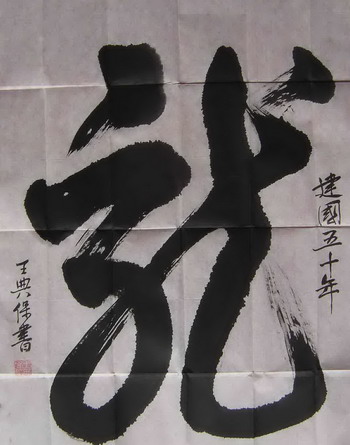 建國五十年
龍
王典保書